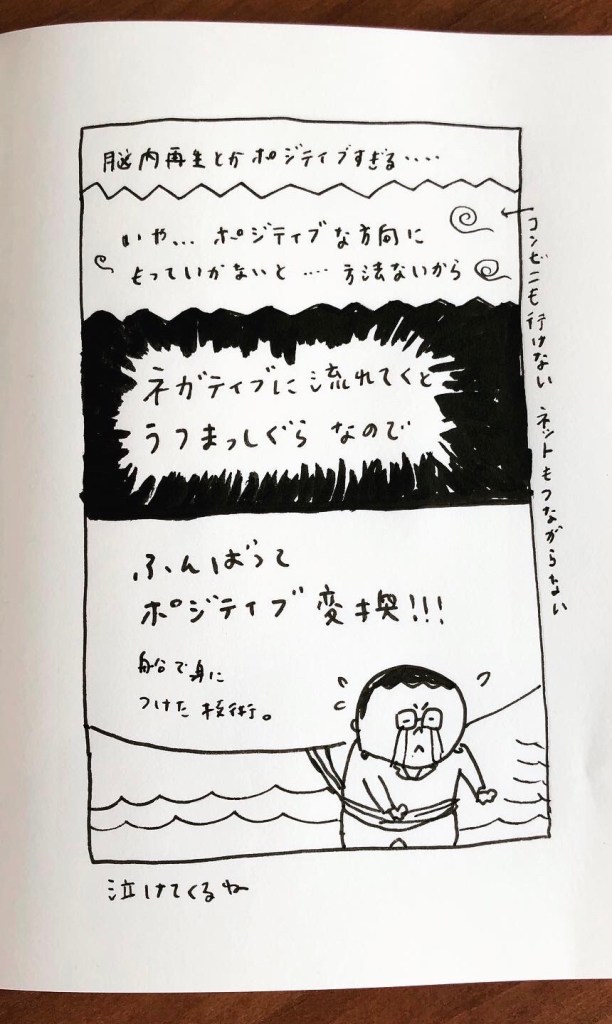 脳内再生とかポジティブすぎる....
いや... ポジティブな方向に
もっていかないと .... 方法ないから
コンビニも行けない ネットもつながらない
ネガティブに流れてくと
うつまっしぐら なので
ふんばって
ポジティブ変換!!!
船で身に
つけた技術。
泣けてくるね